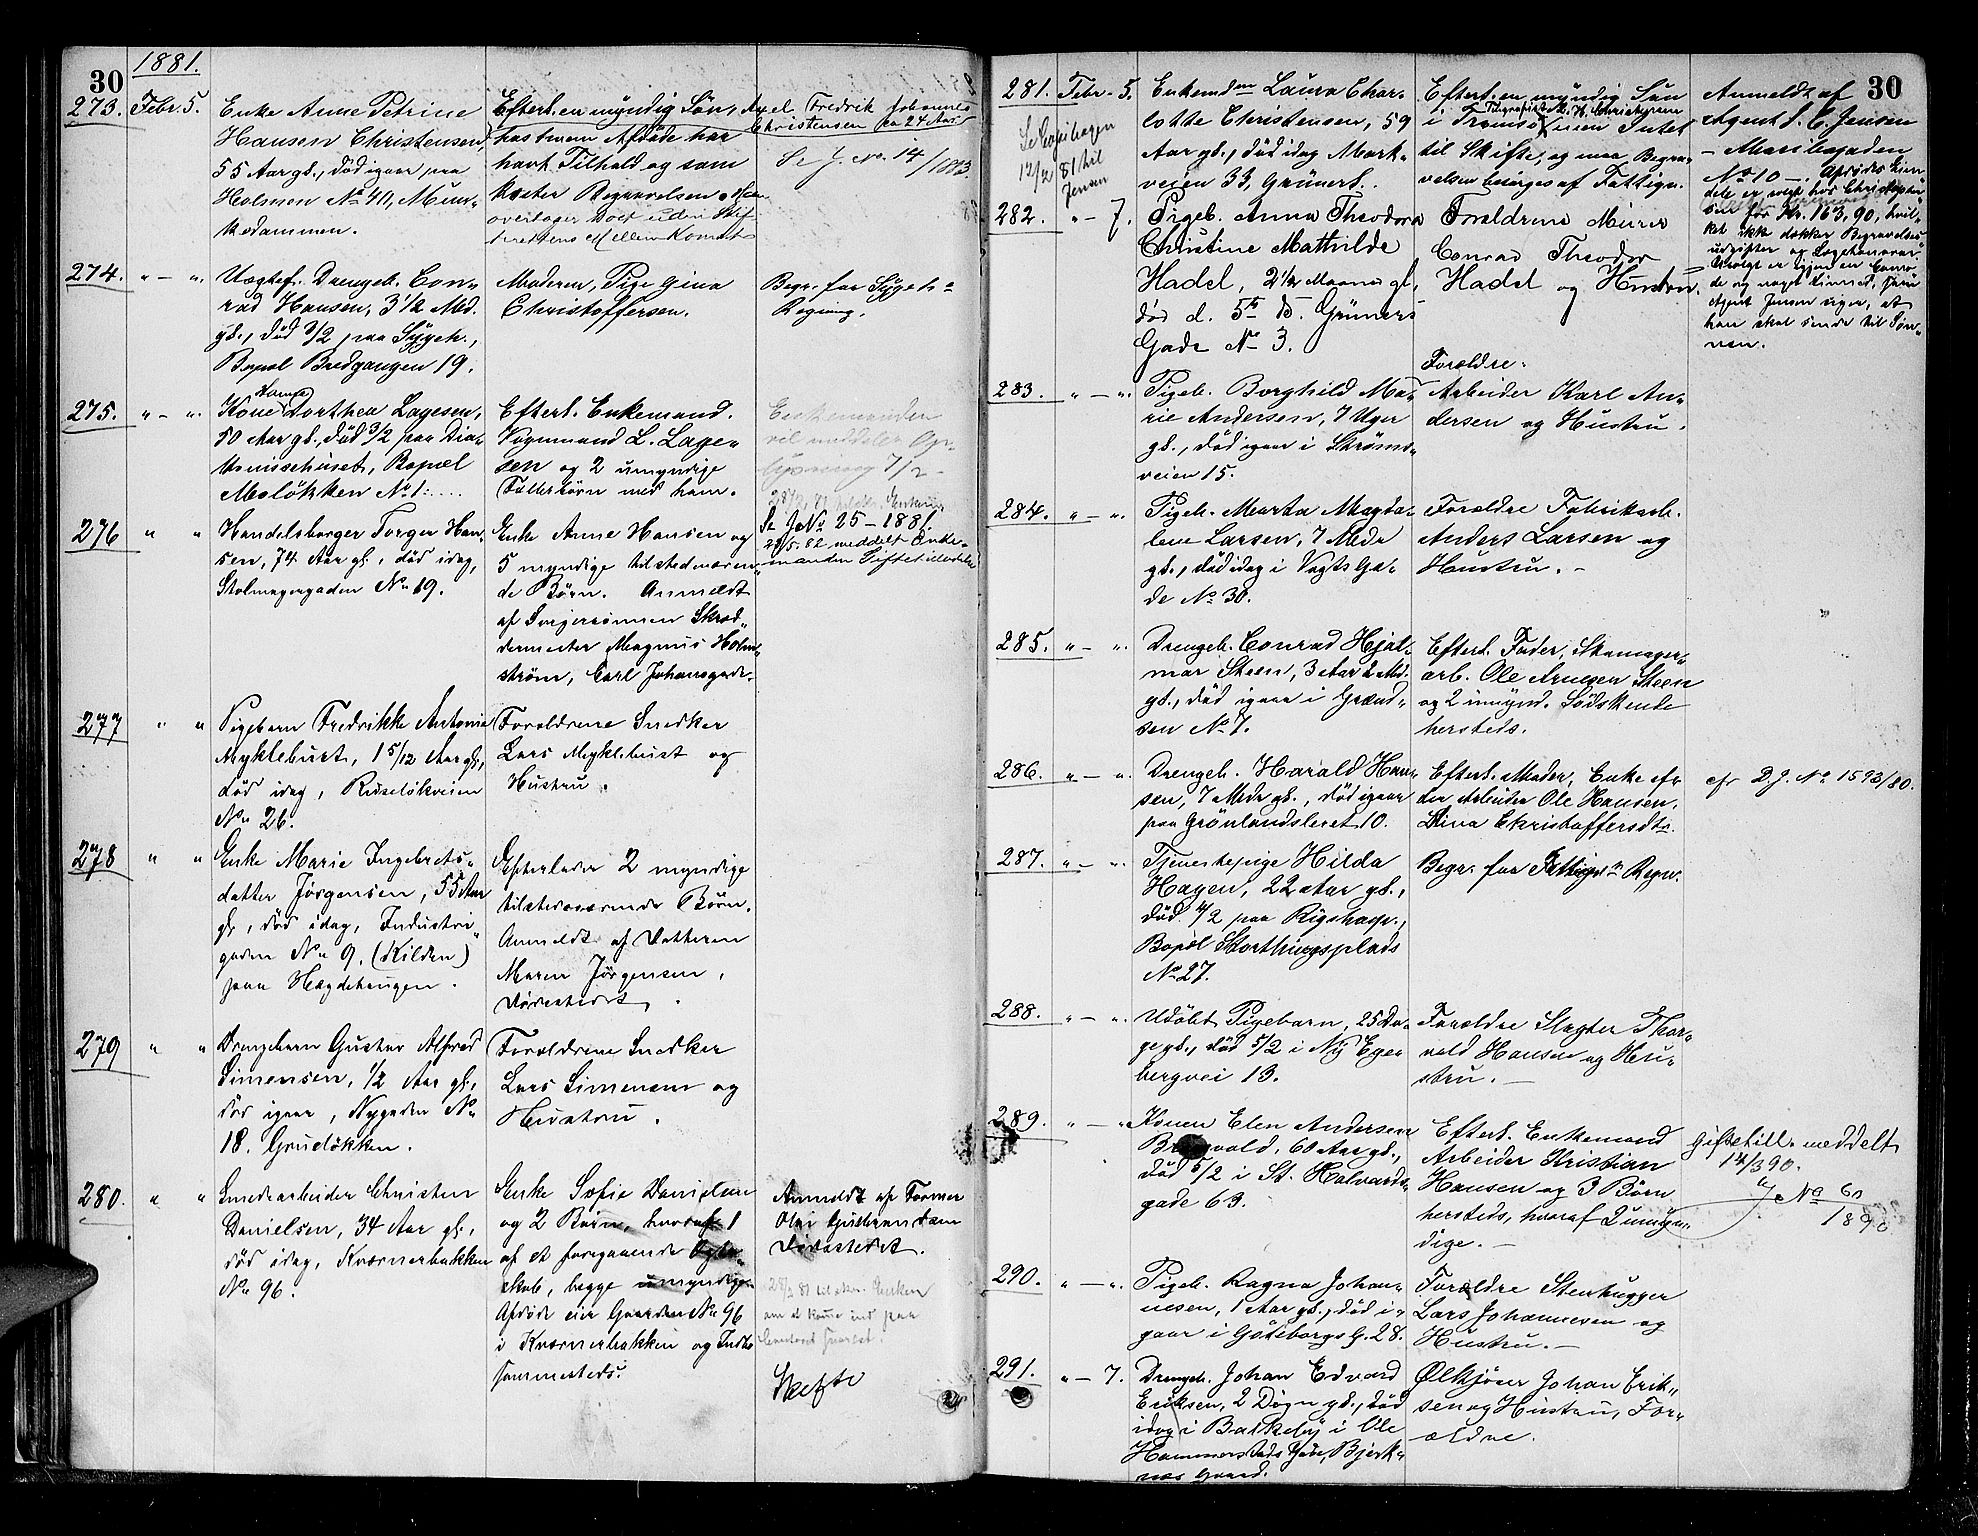 30
1881.
273. Febr. 5.
Enke Anne Petrine
Hansen Christensen,
55 Aar gl., död igaar paa
Holmen No 40, Mun-
kedammen.
Efterl. en myndig Sön, Axel Fredrik Johannes
Christensen ca 24 Aar
hos hvem Afdöde har
havt Tilhold og som
koster Begravelsen
overtager Boet uden Skif-
terettens Mellemkomst
Se J. No. 14/1883
274. " - "
Uægtef. Drengeb. Con-
rad Hansen, 3 1/2 Md.
gl., död 3/2 paa Sygeh.,
Bopæl Bredgangen 19.
Moderen, Pige Gina
Christoffersen.
Begr. for Sygeh-
Regning.
275. " - "
Kone Dorthea Lagesen,
50 Aar gl., död 3/2 paa Dia-
konissehuset, Bopæl
Melökken No 1.
Efterl. Enkemand.
Vognmand L. Lage-
sen og 2 umyndige
Fællesbörn med ham.
Enkemanden
vil meddeles Op-
lysning 7/2 -
Se J No 25 - 1881.
22/5. 82 meddelt Enke-
manden Giftetilladelse
276 " "
Handelsborger Torger Han-
sen, 74 Aar gl., död idag,
Stolmagergaden No 19.
Enke Anne Hansen og
5 myndige tilstedværen-
de Börn. Anmeldt
af Svigersönnen Skræd-
dermester Magnus Holm-
ström, Carl Johansgade.
277 " "
Pigebarn Fredrikke Antonie
Myklebust, 1 5/12 Aar gl.,
död idag, Ruselökveien
No 26.
Forældrene Snedker
Lars Myklebust og
Hustru.
278 " "
Enke Marie Ingebrets-
datter Jörgensen, 55 Aar
gl., död idag, Industri-
gaden No 9, (Kilden)
paa Hægdehaugen.
Efterlader 2 myndige
tilstedværende Börn.
Anmeldt af Datteren
Maren Jörgensen,
Dödsstedet.
279 " "
Drengebarn Gustav Alfred
Simensen, 1/2 Aar gl.,
död igaar, Nygaden No
18. Grudlökken.
Forældrene Snedker
Lars Simensen og
Hustru.
280. " "
Smedearbeider Christen
Danielsen, 34 Aar gl.,
död idag, Kværnerbakken
No 96.
Enke Sofie Danielsen
og 2 Börn, hvoraf 1
af et foregaaende Ægte-
skab, begge umyndige.
Afdöde eier Gaarden No 96
i Kværnerbakken og Indbo
sammesteds.
Anmeldt af Formen
Olai Gulbrandsen
Dödsstedet.
28/2 81 tilskr. Enken
om at komme ind paa
Skifte
30
281. Febr. 5.
Se Copibogen
12/2 81 til
Jensen
Enkemdm Laura Char-
lotte Christensen, 59
Aar gl., död idag Mark-
veien 33, Grünerl.
Efterl. en myndig Sön
i Tromsö, Intet
til Skifte, og maa Begra-
velsen besörges af Fattigv.
Anmeldt af
Agent S. C. Jensen
- Maribogaden
No 10 -. Afdödes Eien-
dele er
for Kr. 163,90, hvil-
ket ikke dækker Begravelses-
udgifter og Lægehonorar.
de og noget Linned, som
Agent Jensen siger, at
han skal sende til Sön-
nen.
282. " - 7.
Pigeb. Anna Theodora
Christine Mathilde
Hadel, 2 1/2 Maaned gl.,
död d. 5te ds. Grüners
Gade No 3.
Forældrene Murer
Conrad Theodor
Hadel og Hustru.
283. " - "
Pigeb. Borghild Ma-
rie Andersen, 7 Uger
gl., död igaar i Ströms-
veien 15.
Forældre.
Arbeider Karl An-
dersen og Hustru.
284. " - "
Pigeb. Marta Magda-
lene Larsen, 7 Mdr
gl., död idag i Vogts Ga-
de No 30.
Forældre Fabrikarb.
Anders Larsen og
Hustru. -
285. " - "
Drengeb. Conrad Hjal-
mar Steen, 3 Aar 2 Md.
gl., död igaar i Grænd-
sen No 7.
Efterl. Fader, Skomager-
arb. Ole Arnesen Steen
og 2 umynd. Södskende
hersteds.
286. " - "
Drengeb. Harald Han-
sen, 7 Mdr gl., död igaar
paa Grönlandsleret 10.
Efterl. Moder, Enke ef-
ter Arbeider Ole Hansen.
Stina Christoffersdtr.
cfr D.J. No 1593/80.
287. " - "
Tjenestepige Hilda
Hagen, 22 Aar gl.,
död 4/2 paa Rigshosp.,
Bopæl Storthingsplads
No 27.
Begr. for Fattigv. Regn.
288. " - "
Udöbt Pigebarn, 25 Da-
ge gl., död 5/2 i Ny Ege-
bergvei 13.
Forældre Slagter Thor-
vald Hansen og Hu-
stru. -
289. " - "
Konen Elen Andersen
död 5/2 i St. Halvards-
gade 63.
Efterl. Enkemand
Arbeider Kristian
Hansen og 3 Börn
hersteds, hvoraf 2 umyn-
dige. -
Giftetill. meddelt
14/3 90.
J No 60
1890
290. " - "
Pigeb. Ragna Johan-
nesen, 1 Aar gl., död i-
gaar i Göteborgs G. 28.
Forældre Stenhugger
Lars Johannesen og
Hustru. -
291. " - 7.
Drengeb. Johan Edvard
Eriksen, 2 Dögn gl., död
idag i Bakkehöj i Ole
Hammerstads Gade, Bjerk-
næs Gaard.
Ölkjörer Johan Erik-
sen og Hustru, For-
ældre.